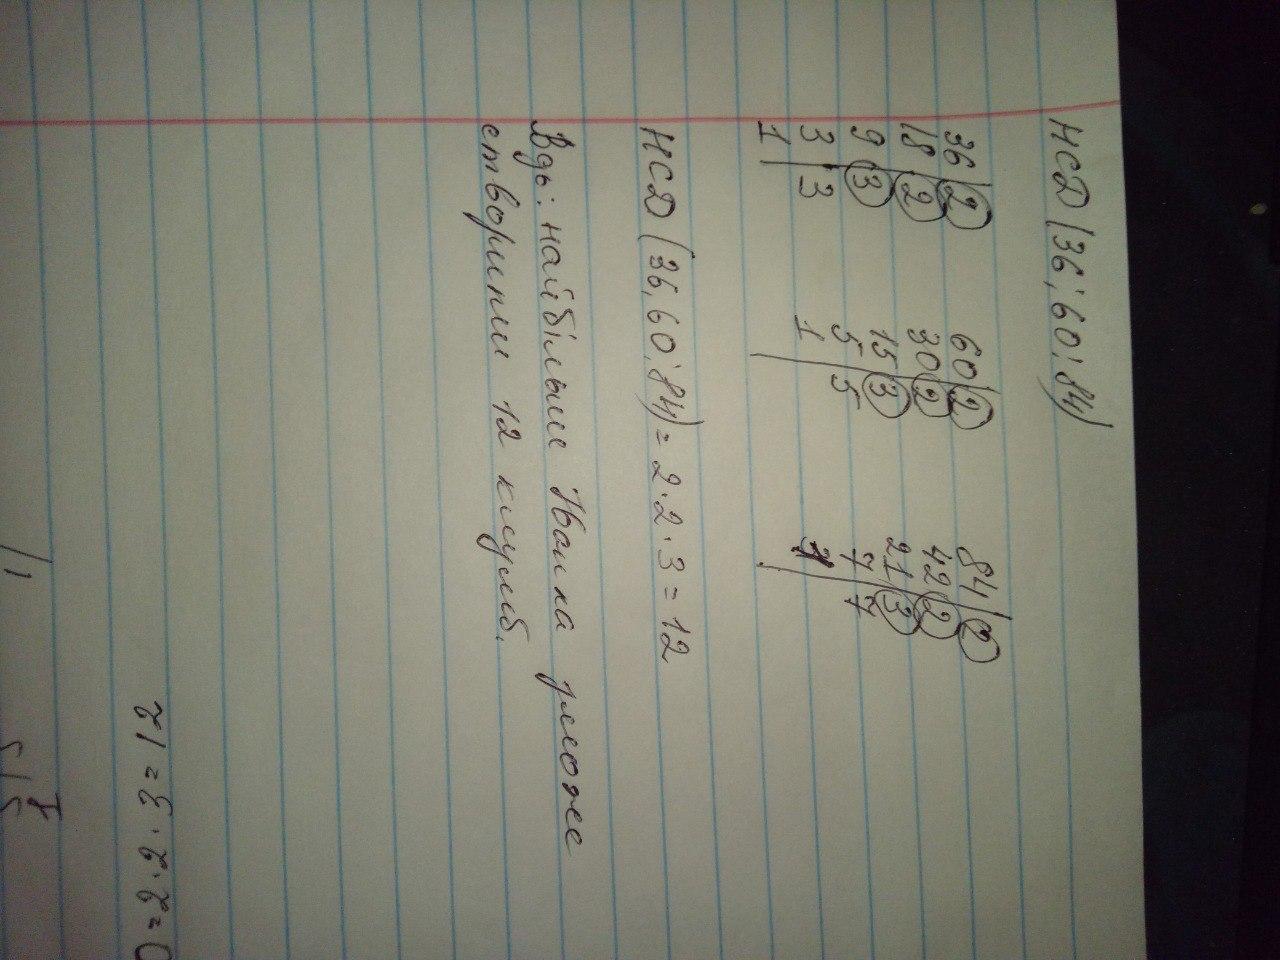 НСД (36; 60; 84)
36 | 2 60 | 2 84 | 2
18 | 2 30 | 2 42 | 2
9 | 3 15 | 3 21 | 3
3 | 3 5 | 5 7 | 7
1 1 1
НСД (36, 60; 84) = 2·2·3 = 12
Вдь: найбільше Іванка зможе
створити 12 клумб.
= 2·2·3 = 12